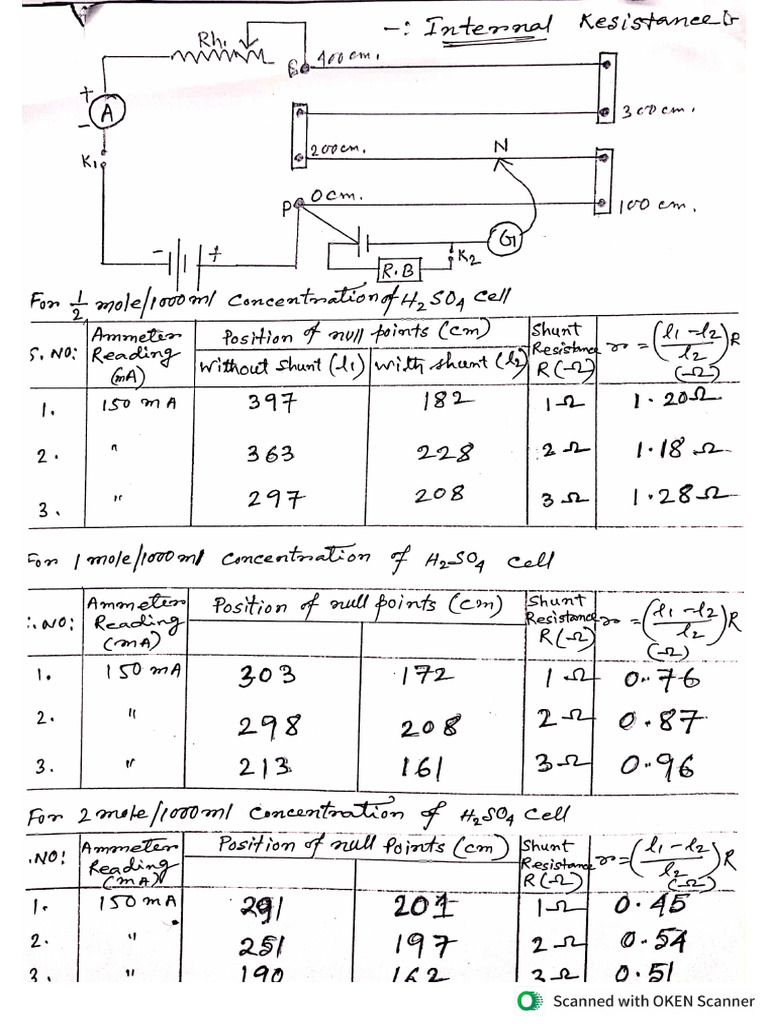 -: Internal Resistance
Rh1
400 cm.
300 cm.
200 cm.
N
100 cm.
P 0 cm.
+
A
-
K1
- +
G
K2
R.B
For 1/2 mole/1000ml Concentration of H2SO4 Cell
S. NO: Ammeter Reading (mA) Position of null points (cm) Shunt Resistance R(Ω) r = (l1-l2/l2)R (Ω)
Without Shunt (l1) With shunt (l2)
1. 150 mA 397 182 1Ω 1.20Ω
2. " 363 228 2Ω 1.18Ω
3. " 297 208 3Ω 1.28Ω
For 1 mole/1000ml Concentration of H2SO4 Cell
.NO: Ammeter Reading (mA) Position of null points (cm) Shunt Resistance R(Ω) r = (l1-l2/l2)R (Ω)
1. 150 mA 303 172 1Ω 0.76
2. " 298 208 2Ω 0.87
3. " 213 161 3Ω 0.96
For 2 mole/1000ml Concentration of H2SO4 Cell
.NO: Ammeter Reading (mA) Position of null Points (cm) Shunt Resistance R(Ω) r = (l1-l2/l2)R (Ω)
1. 150 mA 291 201 1Ω 0.45
2. " 251 197 2Ω 0.54
3. " 190 162 3Ω 0.51
Scanned with OKEN Scanner